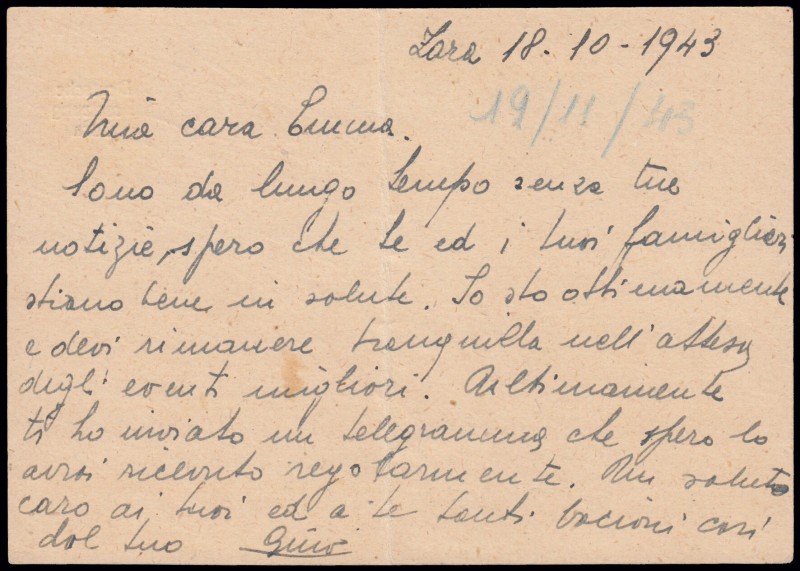 Zara 18-10-1943
19/11/43
Mia cara Emma.
Sono da lungo tempo senza tue
notizie, spero che te ed i tuoi famigliari
stiano bene in salute. Io sto ottimamente
e devi rimanere tranquilla nell'attesa
degli eventi migliori. Ultimamente
ti ho inviato un telegramma che spero lo
avrai ricevuto regolarmente. Un saluto
caro ai tuoi ed a te tanti bacioni cari
dal tuo Gino